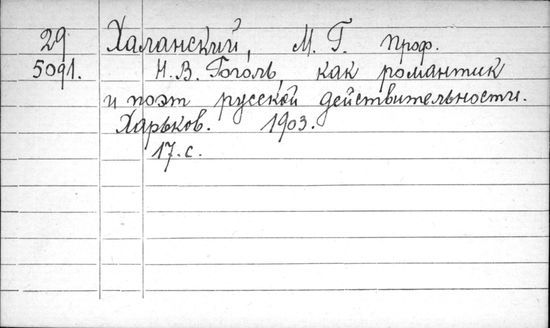 29 Халанский, М. Г. Проф.
5091. Н. В. Гоголь, как романтик
и поэт русской действительности.
Харьков. 1903.
17. с.